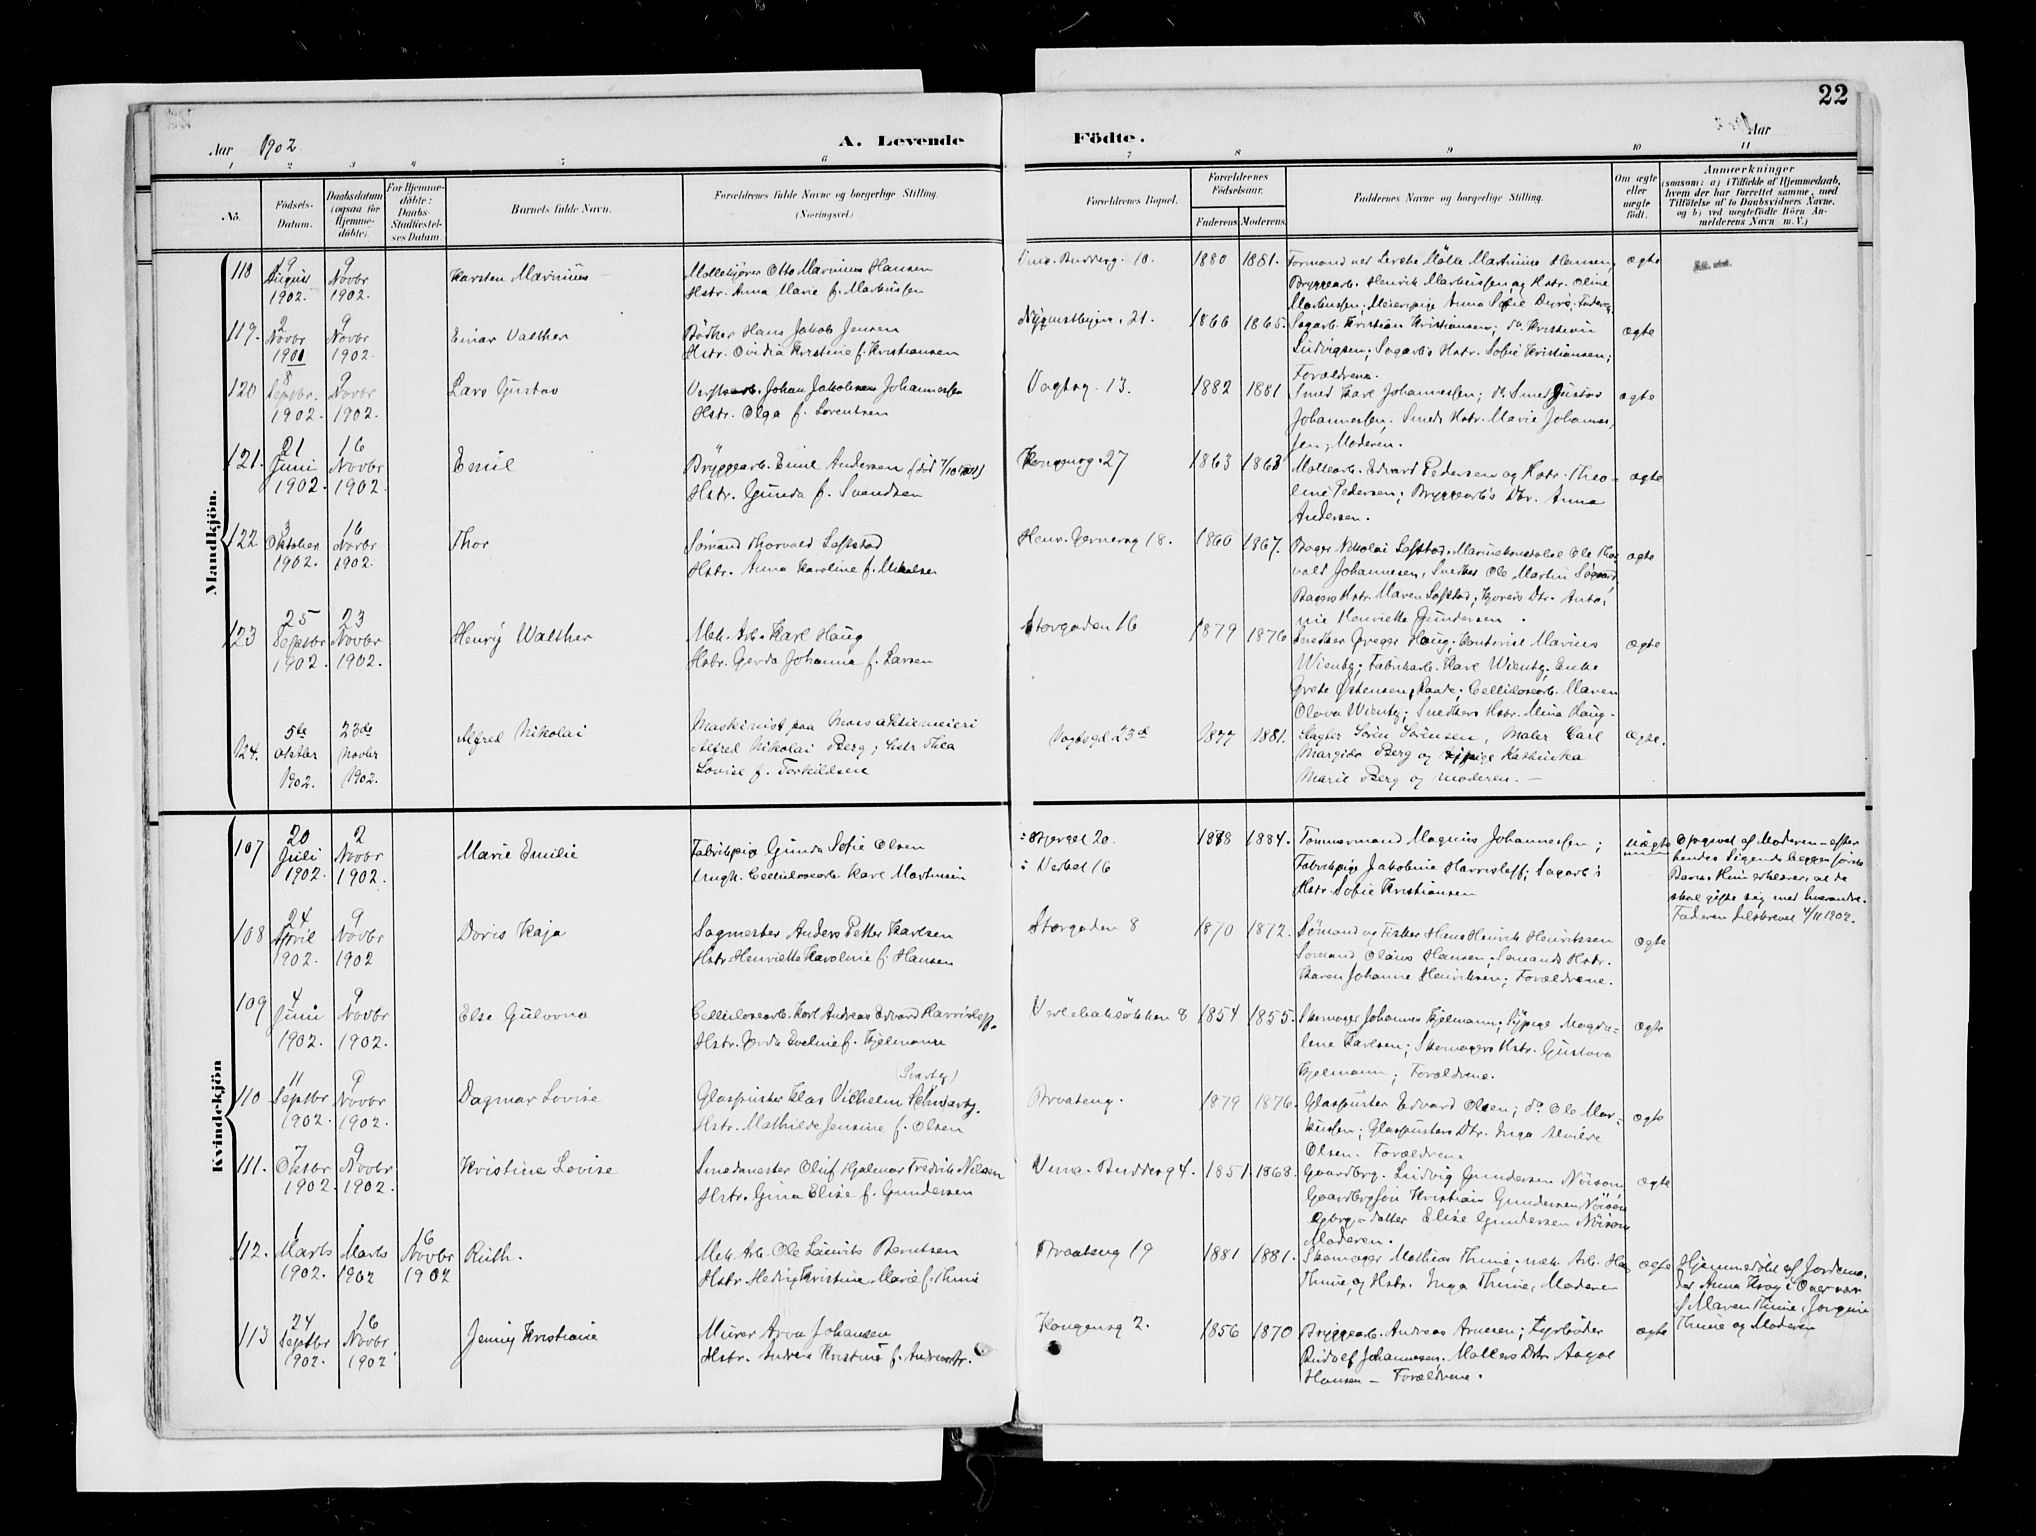 22
Aar 1902
A. Levende Födte.
Aar
1 2 3 4 5 6 7 8 9 10 11
No.
Födsels-Datum.
Daabsdatum (ogsaa for Hjemme-döbte).
For Hjemme-döbte: Daabs-Stadfæstel-ses Datum
Barnets fulde Navn.
Forældrenes fulde Navne og borgerlige Stilling. (Næringsvei.)
Forældrenes Bopæl.
Forældrenes Födselsaar.
Faderens. Moderens.
Faddernes Navne og borgerlige Stilling.
Om ægte eller uægte födt.
Anmærkninger
(saasom: a) i Tilfælde af Hjemmedaab,
hvem der har forrettet samme, med
Tilföielse af to Daabsvidners Navne.
og b) ved uægtefödte Börn An-
melderens Navn m.V.)
Mandkjön.
118 19 August 1902. 9 Novbr 1902. Karsten Marinius
Møllekjører Otto Marinius Hansen
Hstr. Anna Marie f. Markussen
10. 1880 1881.
Formand ved Mölle Martinius Hansen,
Bryggearb. Henrik Markussen og Hstr. Oline
Markussen; Meierpige Anna Sofie
ægte
119. 2 Novbr 1901 9 Novbr 1902. Einar Valther
Bödker Hans Jakob Jensen
Hstr. Ovidia Kristine f. Kristiansen
21. 1866 1865.
Sagarb. Kristian Kristiansen; do Kristian
Ludvigsen; Sagarb's Hstr. Sofie Kristiansen;
Forældrene.
ægte
120 8 Septbr. 1902. 9 Novbr 1902. Lars Gustav
Johan Jakobsen Johannessen
Hstr. Olga f. Lorentzen
Vogtsg. 13. 1882 1881
Smed Karl Johannessen; do Smed Gustav
Johannessen. Smeds Hstr. Marie Johannes,
sen; Moderen.
ægte
121. 21 Juni 1902. 16 Novbr 1902. Emil
Bryggearb. Emil Andersen (död 7/10
Hstr. Gunda f. Svendsen
Kongensg. 27 1863 1863
Møllearb. Edvard Pedersen og Hstr. Theo-
line Pedersen; Bryggearb's Dtr. Anna
Andersen.
ægte
122 3 Oktober 1902. 16 Novbr 1902. Thor
Sømand Thorvald Løkstad
Hstr. Anna Karoline f.
Henr. Gernersg 18. 1860 1867.
Bager Nikolai Løkstad. Ole Thor
vald Johannesen, Snedker Ole Martin
Bagers Hstr. Maren Løkstad; Dtr. Anto,
nie Henriette Gundersen.
ægte
123 25 Septbr 1902. 23 Novbr 1902. Henry Walther
Mek. Arb. Karl Haug
Hstr. Gerda Johanna f. Larsen
Storgaden 16 1879 1876
Snedker Gregor Haug; Kontorist Marius
Wienbg; Fabrikarb. Karl Wienbg; Enke
Grete Østensen, Raade; Cellulosearb. Maren
Olava Wienbg; Snedkers Hstr. Mina Haug.
ægte
124. 5te oktbr 1902. 23de novbr 1902. Alfred Nikolai
Maskinist paa Moss aktiemeieri
Alfred Nikolai Berg; hstr Thea
Lovise f. Torkildsen
Vogtsgd 23d 1877 1881.
Slagter Sören Sörensen, Maler Carl
Margido Berg og sypige Kathinka
Marie Berg og moderen. —
ægte.
Kvindekjön
107 20 Juli 1902. 2 Novbr 1902. Marie Emilie
Fabrikpige Gunda Sofie Olsen
Ungk. Cellulosearb. Karl Martinsen
: Bjerget 20.
: Verket 16
1884.
Tömmermand Magnus Johannessen;
Fabrikpige Jakobine Harrisleff; Sagarb's
Hstr. Sofie Kristiansen
uægte
Opgivet af Moderen – efter
hendes Sigende begges förste
Barn. Hun erklærer, at de
skal gifte sig med hverandre.
Faderen tilskrevet 4/11 1902.
108 24 April 1902. 9 Novbr 1902 Doris Kaja
Sagmester Anders Petter Karlsen
Hstr Henriette Karoline f. Hansen
Storgaden 8 1870 1872.
Sömand og Fisker Hans Henrik Henrikssen
Sömand Olaus Hansen, Sömands Hstr.
Karen Johanne Henriksen; Forældrene.
ægte
109 4 Juni 1902. 9 Novbr 1902. Else Gulovna
Cellulosearb. Karl Andreas Edvard Harrisleff.
Hstr. Eveline f. Hjelmann
8 1854 1855.
Skomager Johannes Hjelmann; Sypige Magda-
lene Karlsen; Skomagers Hstr. Gustava
Hjelmann; Forældrene.
ægte
110 11 Septbr 1902. 9 Novbr 1902. Dagmar Lovise
(Svartz)
Glaspuster Klas Vilhelm Schwartz.
Hstr. Mathilde Jensine f. Olsen
Braateng. 1879 1876.
Glaspuster Edvard Olsen; do Ole Mar-
kussen; Glaspusters Dtr. Inga Elvire
Olsen. Forældrene
ægte
111. 7 Oktbr 1902. 9 Novbr 1902. Kristine Lovise
Smedmester Oluf Hjalmar Fredrik Nilssen
Hstr. Gina Elise f. Gundersen
4. 1851 1868.
Gaardbrg. Ludvig Gundersen Nöisom
Gaardbrgsön Kristian Gundersen Nöisom
datter Elise Gundersen Nöisom
Moderen.
ægte
112. 1 Marts 1902. 1 Marts 1902 16 Novbr 1902 Ruth.
Mek. Arb. Ole Laurits Berntsen
Hstr Hedvig Kristine Marie f. Thune
Braateng 19 1881 1881.
Skomager Mathias Thune; mek. Arb. Hans
Thune, og Hstr. Inga Thune, Moderen
ægte
Hjemmedöbt af Jordemo,
der Anna Krog i Overvær
af Maren Thune, Jorgine
Thune og Moderen
113 24 Septbr 1902. 16 Novbr 1902 Jenny Kristiane
Murer Arva Johansen
Hstr. Andrea Kristine f. Andreasdtr.
Kongensg 2. 1856 1870
Bryggearb. Andreas Arnesen; Fyrböder
Rudolf Johannesen. Møllers Dtr. Aagot
Hansen – Forældrene.
ægte